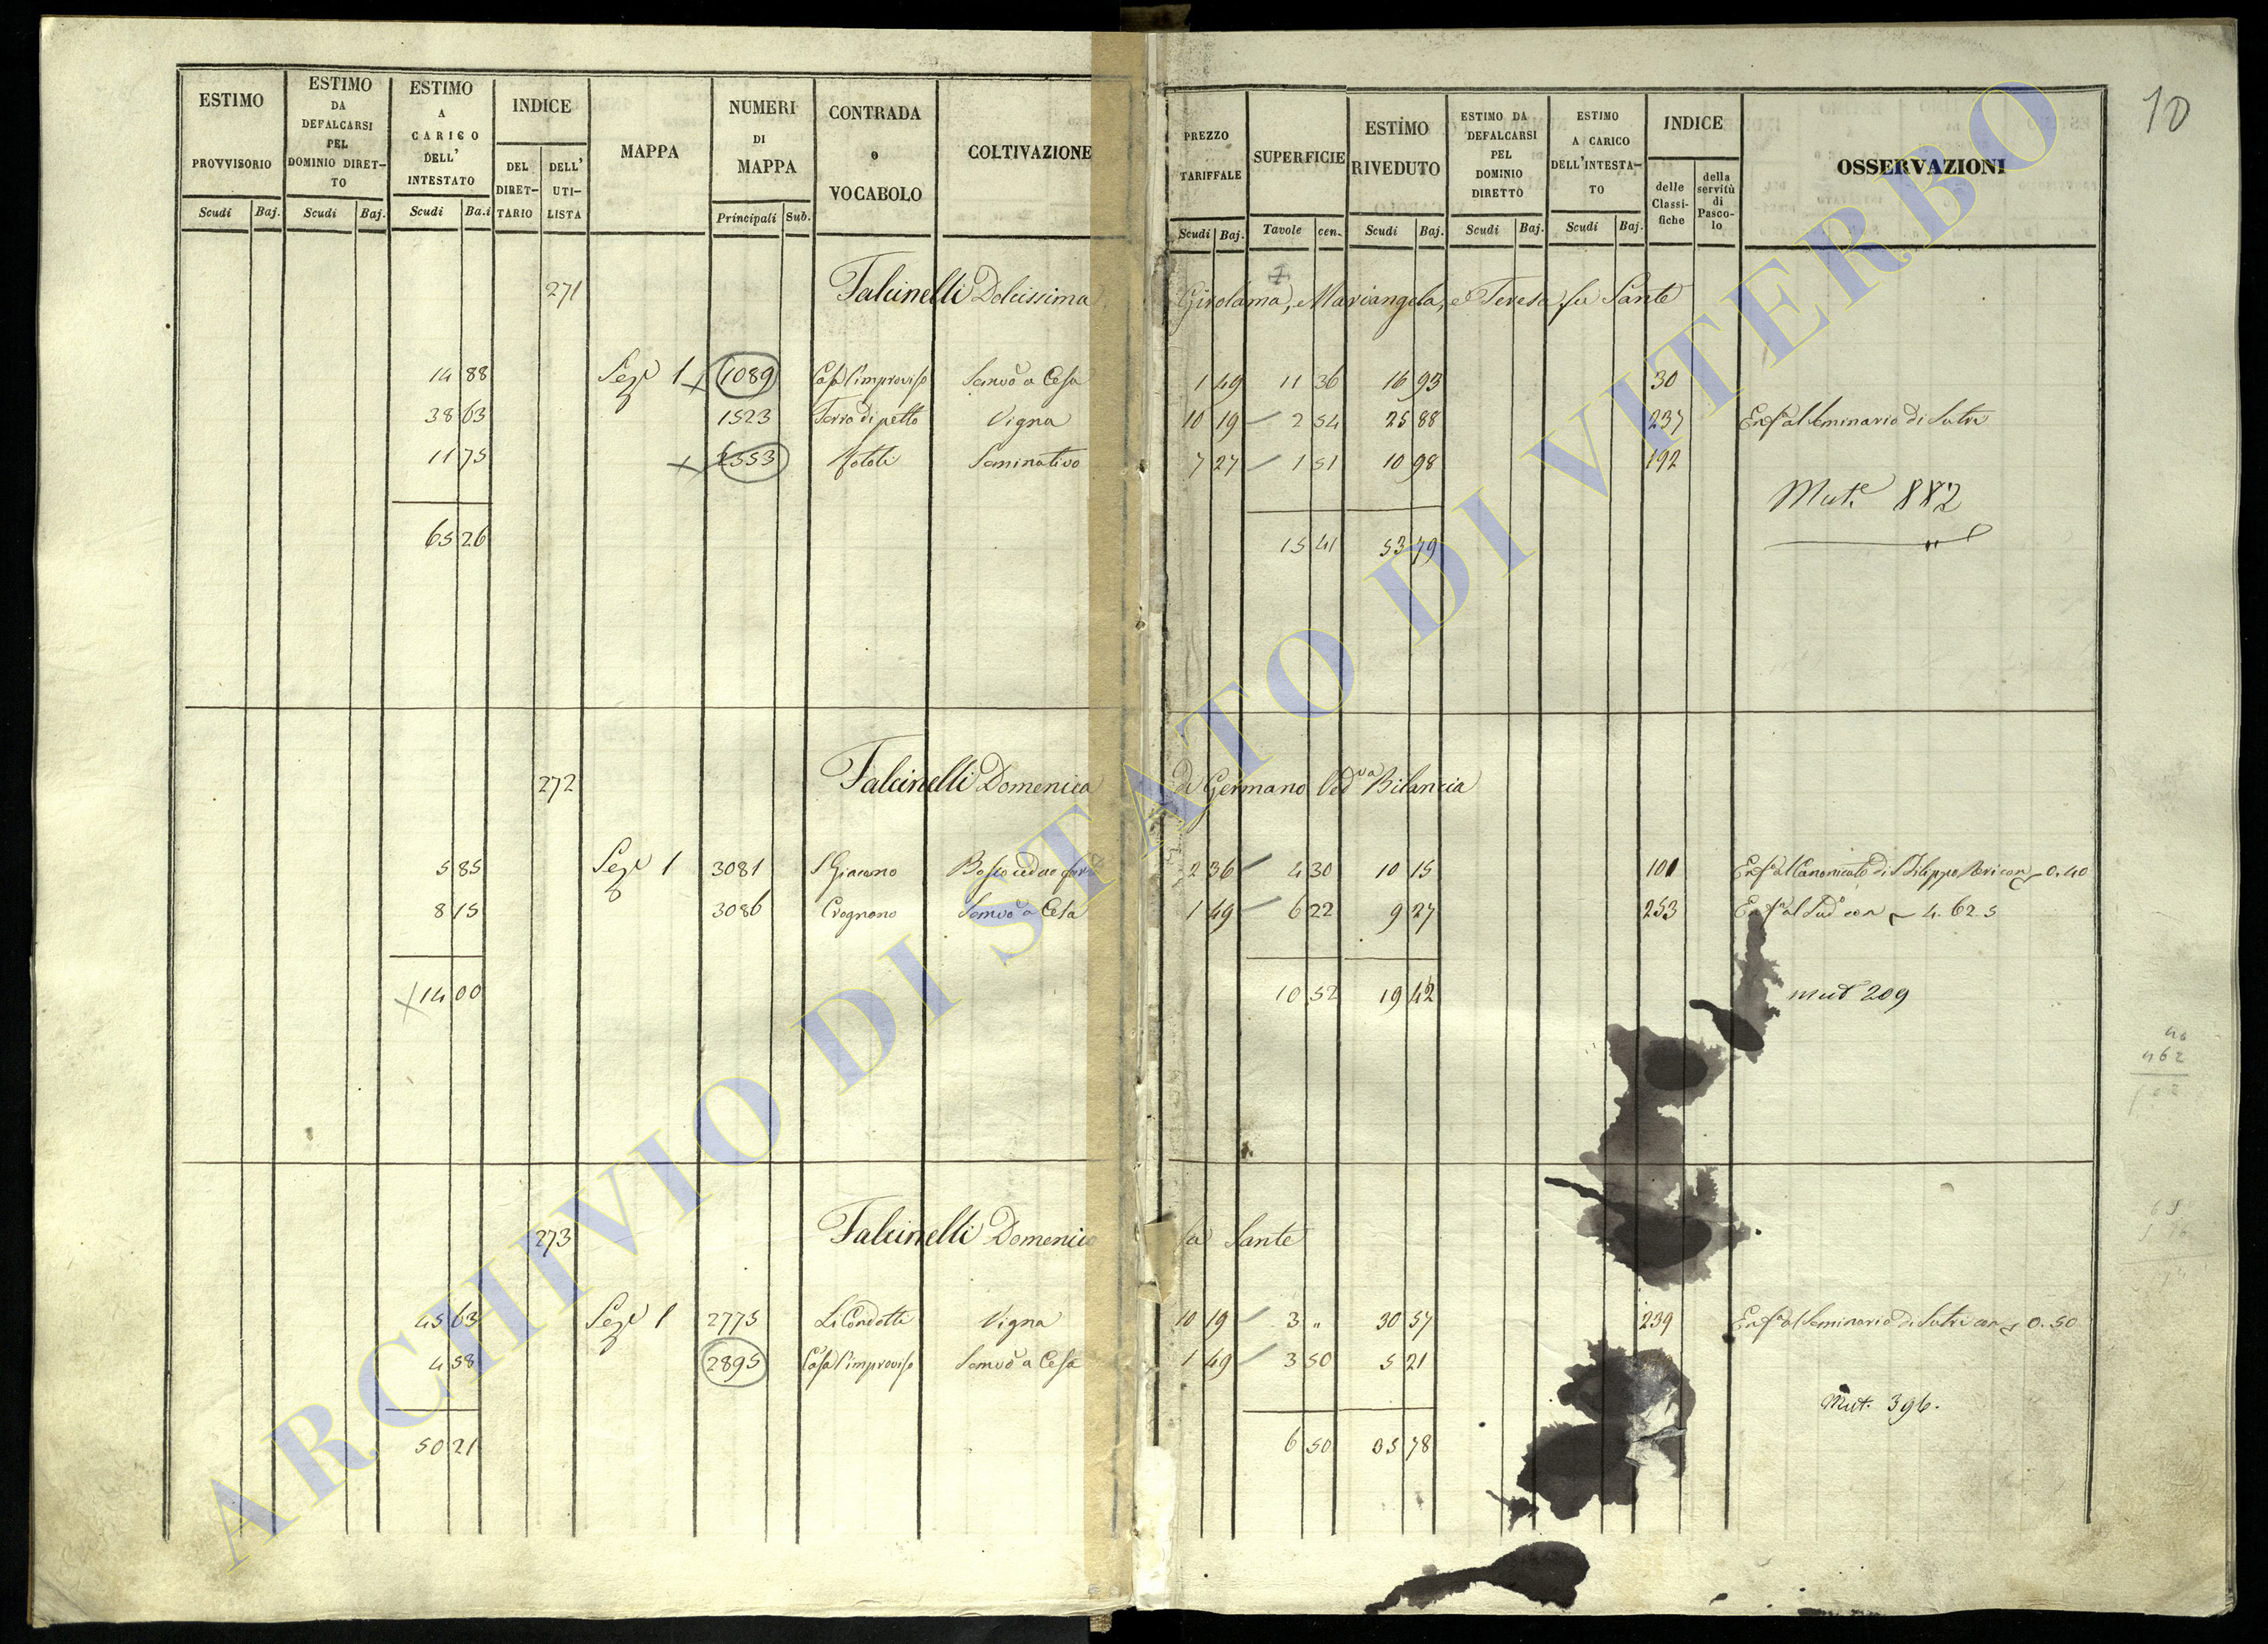 10
ESTIMO PROVVISORIO
ESTIMO DA DEFALCARSI PEL DOMINIO DIRETTO
ESTIMO A CARICO DELL' INTESTATO
INDICE
DEL DIRETTARIO
DELL' UTILISTA
MAPPA
NUMERI DI MAPPA
CONTRADA o VOCABOLO
COLTIVAZIONE
PREZZO TARIFFALE
SUPERFICIE
ESTIMO RIVEDUTO
ESTIMO DA DEFALCARSI PEL DOMINIO DIRETTO
ESTIMO A CARICO DELL'INTESTATO
INDICE
delle Classifiche
della servitù di Pascolo
OSSERVAZIONI
Scudi Baj. Scudi Baj. Scudi Ba.i Principali Sub. Scudi Baj. Tavole cen. Scudi Baj. Scudi Baj. Scudi Baj.
271 Falcinelli Dolcissima Girolama, Mariangela, e Teresa fu Sante
14 88 Sez.e 1 1089 Casa l'improviso Semvo a Cesa 1 49 11 36 16 93 30
38 63 1523 Terra di petto Vigna 10 19 2 54 25 88 237 Enfa al Seminario di Sutri
11 75 2553 Seminativo 7 27 1 51 10 98 192
Mut.e 882
65 26 15 41 53 79
272 Falcinelli Domenica di Germano Ved.va Bilancia
5 85 Sez.e 1 3081 S Giacomo Bosco ceduo 2 36 4 30 10 15 101 Enfa al Canonicato di S Filippo Neri con 0.40
8 15 3086 Crognano Semvo a Cesa 1 49 6 22 9 27 253 Enfa al Sudo con 4. 62. 5
14 00 10 52 19 42 mut 209
273 Falcinelli Domenico fu Sante
45 63 Sez.e 1 2775 Li Condotti Vigna 10 19 3 " 30 57 239 Enfa al Seminario di Sutri con 0.50
4 58 2895 Casa l'improviso Semvo a Cesa 1 49 3 50 5 21
Mut. 396.
50 21 6 50 35 78
ARCHIVIO DI STATO DI VITERBO